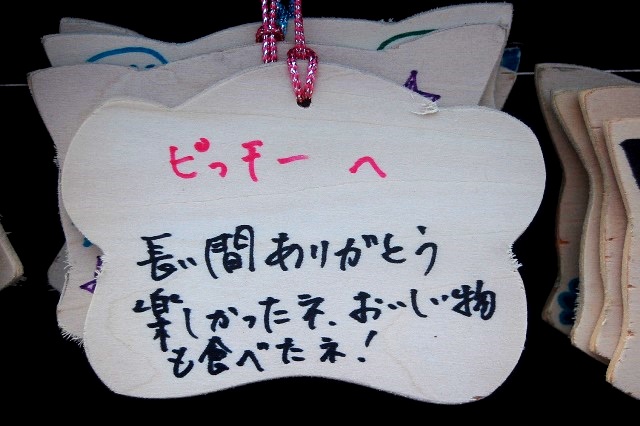 ピッチー へ
長い間ありがとう
楽しかったネ、おいしい物
も食べたネ!